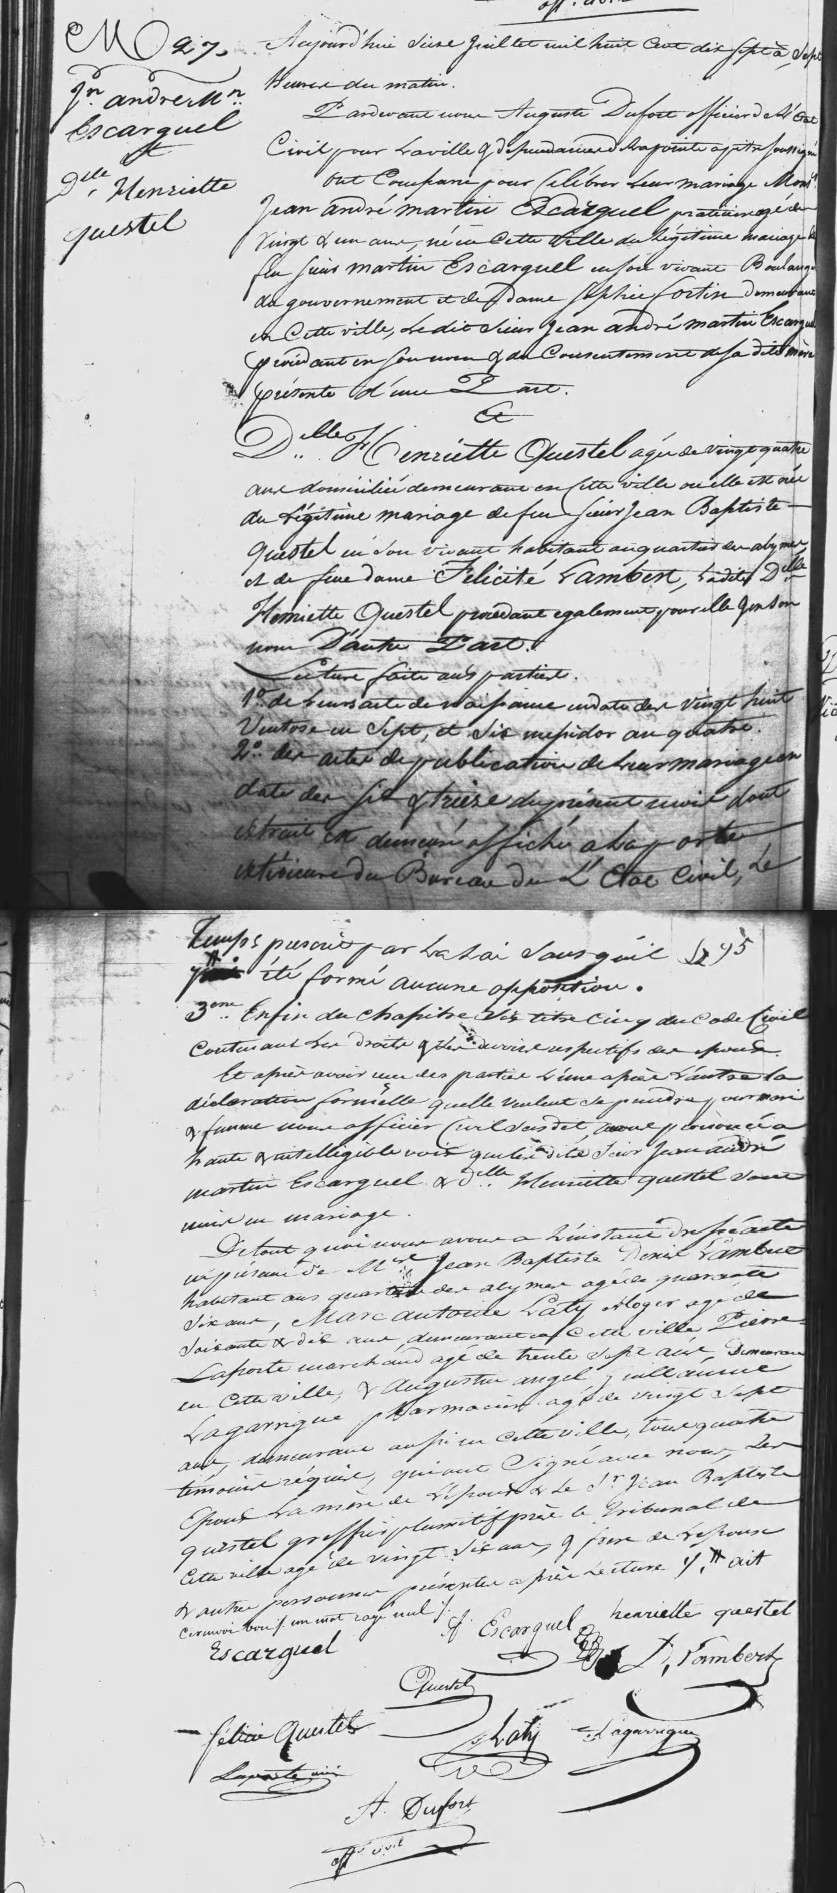 off. civil
M 27.
Jn. andre Mn.
Escarguel
et
Dlle. Henriette
questel
Aujourd'hui seize Juillet mil huit Cent dix sept à Sept
heures du matin.
Pardevant nous Auguste Dufort officier de L'Etat
Civil pour La ville & dependances de La pointe apitre soussigné
Ont Comparu pour Célébrer Leur mariage Monsr.
Jean andré martin Escarguel praticien agé de
vingt & un ans, né en Cette Ville du Légitime mariage de
feu Sieur martin Escarguel en son vivant Boulanger
du gouvernement et de dame Sophie fortin demeurant
en Cette ville, Le dit Sieur Jean andré martin Escarguel
procédant en son nom & du Consentement de sa dite mère
présente d'une Part.
Et
Delle. Henriette Questel agée de vingt quatre
ans domiciliée demeurant en Cette ville ou elle est née
du Légitime mariage de feu Sieur Jean Baptiste
Questel en son vivant habitant au quartier des abymes
et de feue dame Félicité Lambert, Ladite Delle
Henriette Questel procédant egalement pour elle & en son
nom D'autre Part.
Lecture faite aux parties.
1o. de Leurs acte de naissance en date des vingt huit
Ventose an Sept, et Six messidor an quatre.
2o. des actes de publication de Leur mariage en
date des six & treize du présent mois dont
extrait est demeuré affiché a La porte
extérieure du Bureau de L'Etat Civil, Le
Temps prescrit par La Loi sans qu'il 95
été formé aucune opposition.
3eme. Enfin du chapitre Six titre Cinq du Code Civil
Contenant Les droits & Les devoirs respectifs des époux.
Et après avoir reçu des parties L'une après L'autre la
déclaration formelle quelle veulent se prendre pour mari
& femme nous officier Civil Susdit avons prononcé a
haute & intelligible voix que Le dit Sieur Jean andré
martin Escarguel & Dlle. Henriette questel sont
unis en mariage.
De tout quoi nous avons a L'instant dressé acte
en présence de Mrs. Jean Baptiste Denis Lambert
habitant aux quartier des abymes agé de quarante
Six ans, Marc antoine Laty horloger agé de
soixante & dix ans, demeurant en Cette ville, Pierre
Laporte marchand agé de trente sept ans, Demeurant
en Cette ville, & Augustin angel guillaume
Lagarrigue pharmacien agé de vingt Sept
ans, demeurant aussi en Cette ville, tous quatre
témoins réquis, qui ont Signé avec nous, Les
Epoux La mère de L'époux & Le Sr. Jean Baptiste
questel greffier plumitif près le Tribunal de
Cette ville agé de vingt Six ans, & frère de L'epouse
& autres personnes présentes après Lecture ait
ce renvoi bon un mot rayé nul
Escarguel henriette questel
Escarguel D. Lambert
Questel
félicie Questel Laty Lagarrigue
Laporte
A. Dufort
off. civil